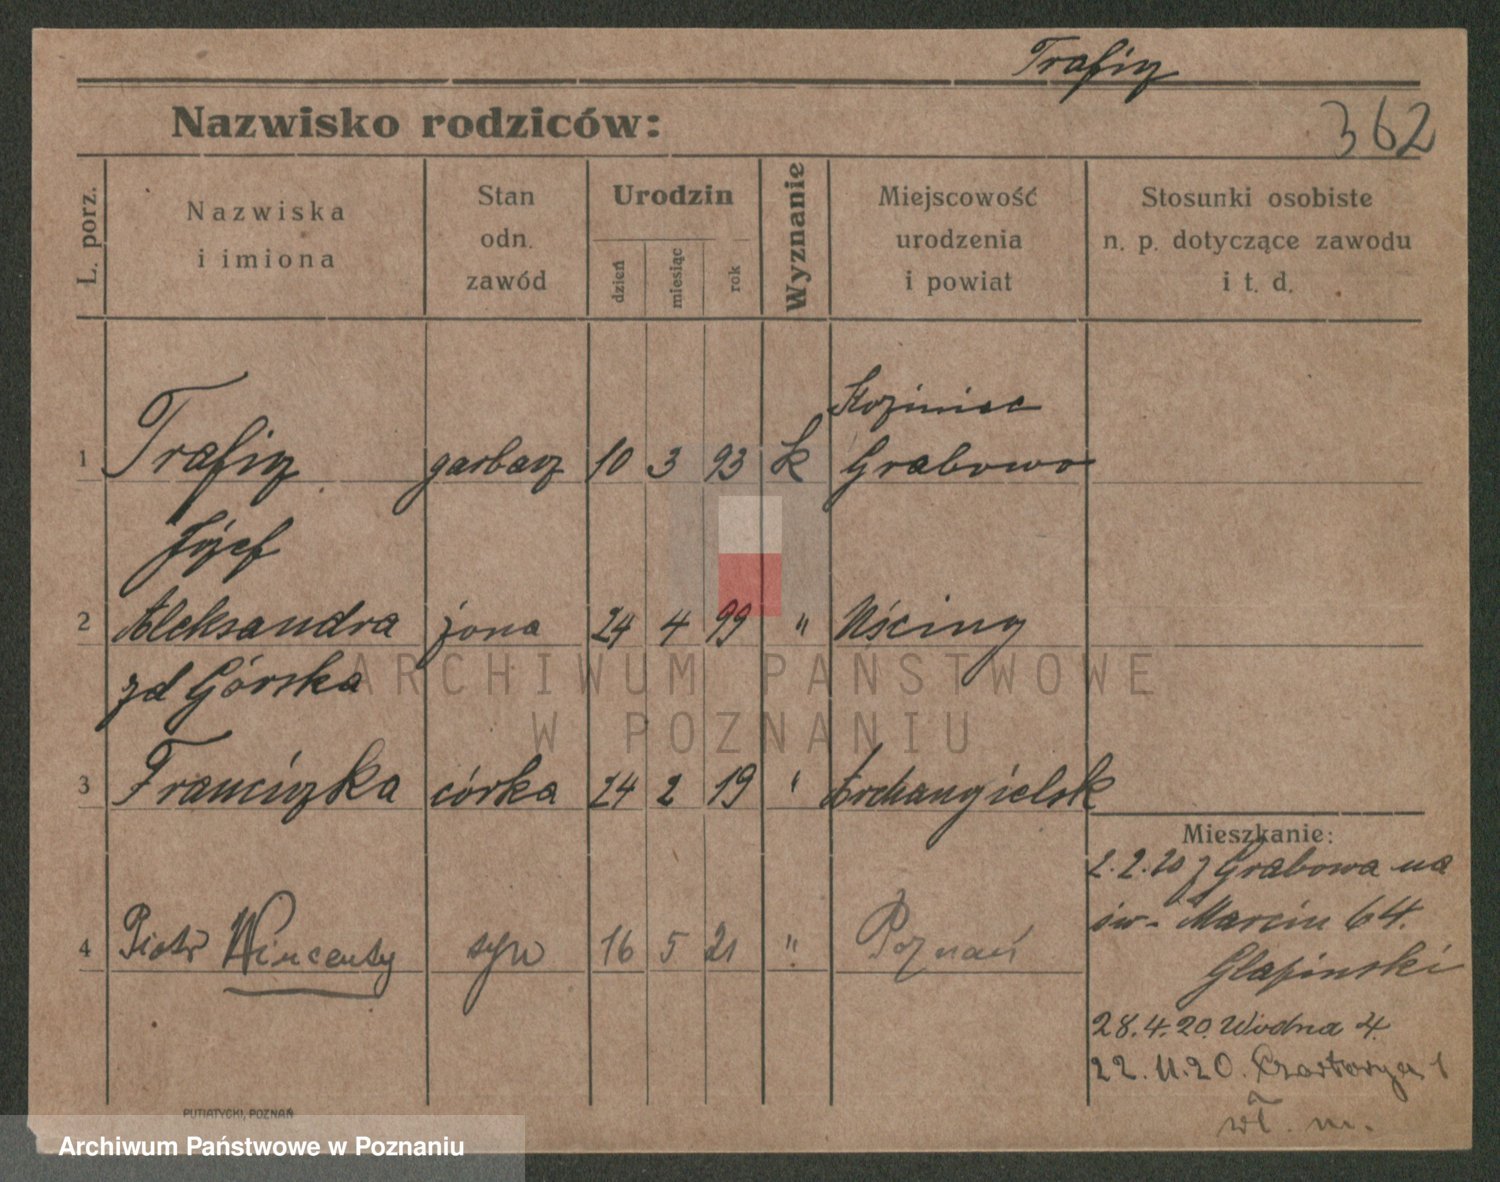 Trafisz
Nazwisko rodziców:
362
L. porz.
Nazwiska
i imiona
Stan
odn.
zawód
Urodzin
dzień
miesiąc
rok
Wyznanie
Miejscowość
urodzenia
i powiat
Stosunki osobiste
n. p. dotyczące zawodu
i t. d.
Kozminiec
1 garbarz 10 3 93 k Grabowo
Józef
2 Aleksandra żona 24 4 99 " Uściny
zd Górska
ARCHIWUM PAŃSTWOWE
W POZNANIU
3 Franciszka córka 24 2 19 " Archangielsk
Mieszkanie:
2.2.20 z Grabowa na
św. Marcin 64.
4 Piotr Wincenty syn 16 5 21 " Poznań
Glapinski
28.4.20. Wodna 4.
22.11.20. Czartorya 1
wł. m.
PUTIATYCKI, POZNAŃ
Archiwum Państwowe w Poznaniu